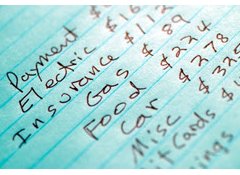 Payment $16
Electric $112
Insurance $ 89
Gas $ 224
Food $ 278
Car $ 325
Misc $
ift Cards
ings